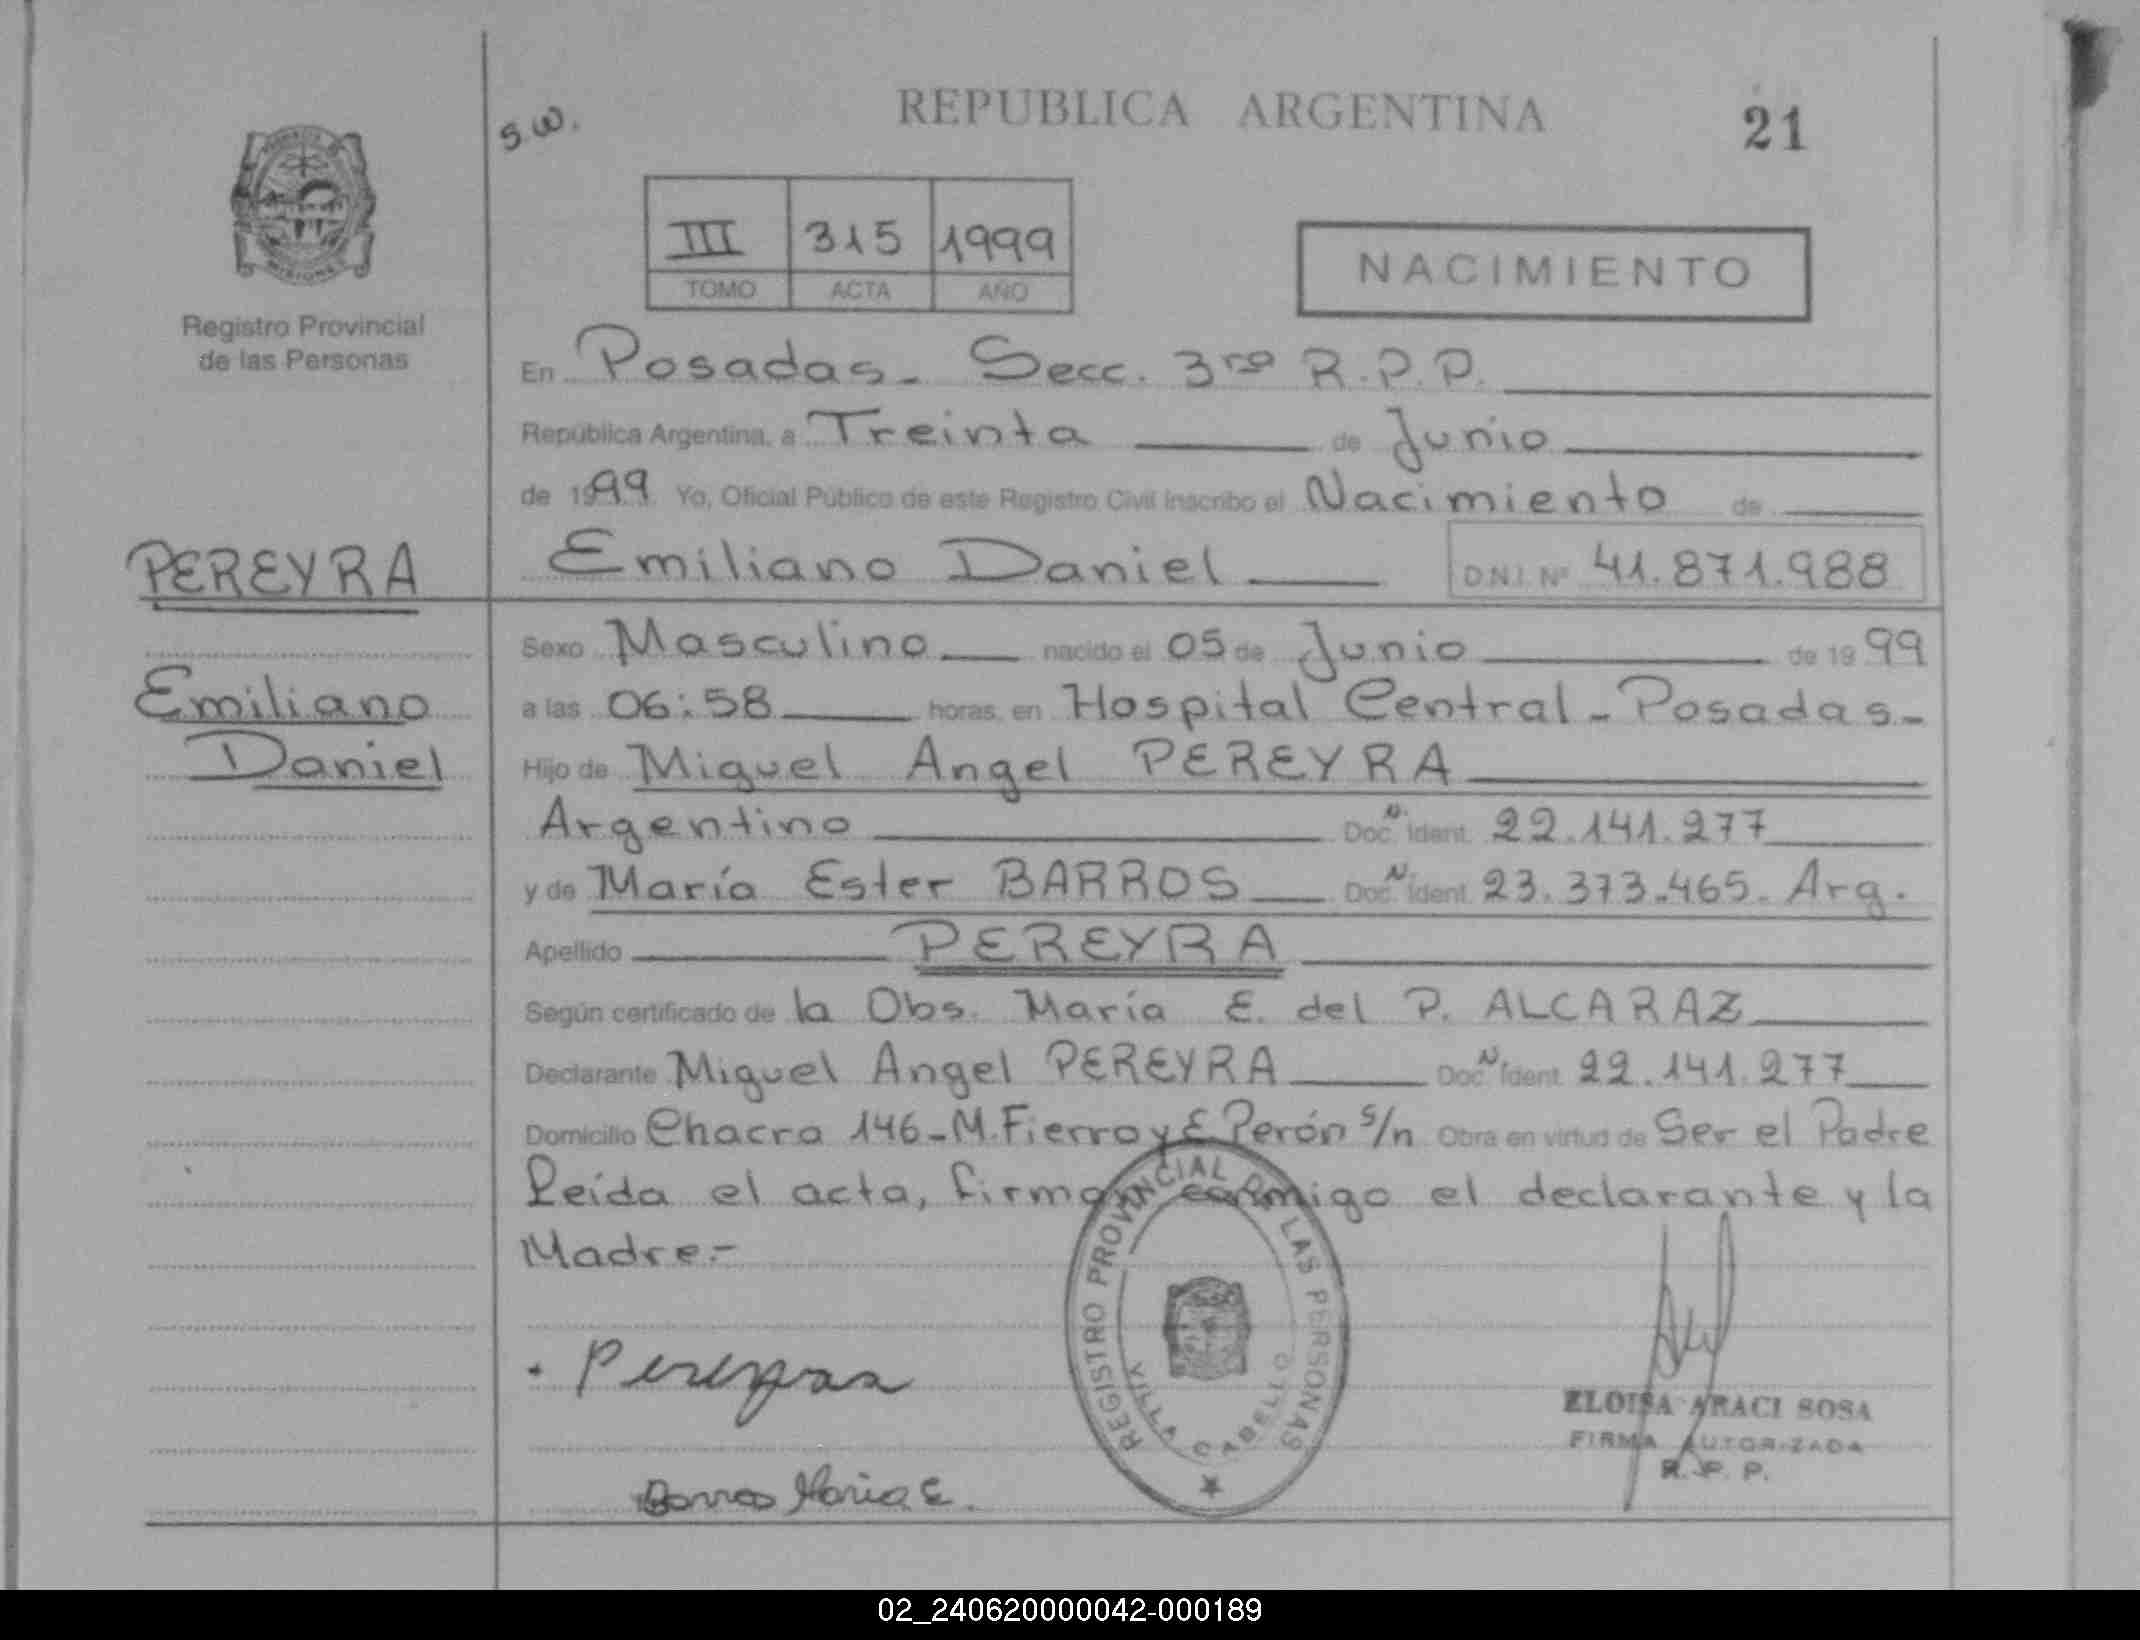 REPUBLICA ARGENTINA
21
s.w.
III 315 1999
TOMO ACTA AÑO
NACIMIENTO
MISIONES
Registro Provincial
de las Personas
En Posadas - Secc. 3ra R.P.P.
República Argentina, a Treinta de Junio
de 1999 Yo, Oficial Público de este Registro Civil inscribo el Nacimiento de
PEREYRA
Emiliano Daniel D.N.I. Nº 41.871.988
Sexo Masculino nacido el 05 de Junio de 1999
Emiliano
a las 06:58 horas, en Hospital Central - Posadas -
Daniel
Hijo de Miguel Angel PEREYRA
Argentino Doc. Nº Ident. 22.141.277
y de María Ester BARROS Doc. Nº Ident. 23.373.465. Arg.
Apellido PEREYRA
Según certificado de la Obs. María E. del P. ALCARAZ
Declarante Miguel Angel PEREYRA Doc. Nº Ident. 22.141.277
Domicilio Chacra 146 - M. Fierro y E Perón s/n Obra en virtud de Ser el Padre
Leída el acta, firman conmigo el declarante y la
Madre.-
REGISTRO PROVINCIAL DE LAS PERSONAS
VILLA CABELLO
Pereyra
Barros Maria E.
ELOISA ARACI SOSA
FIRMA AUTORIZADA
R. P. P.
02_240620000042-000189